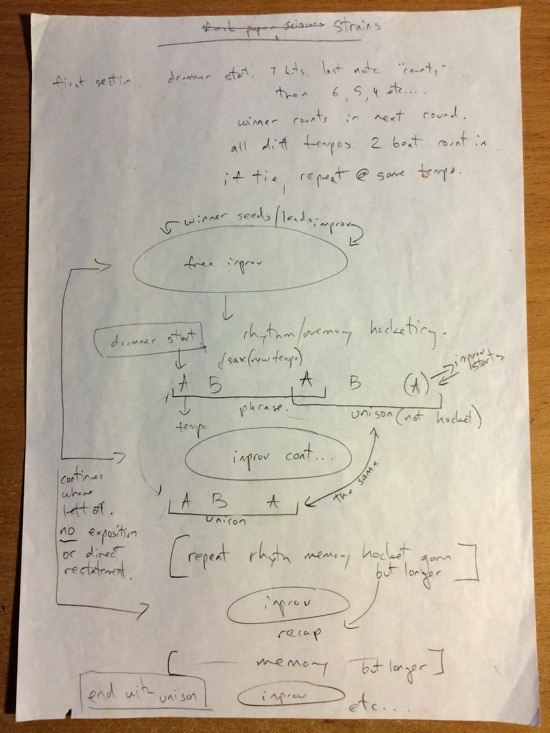 Rock paper scissors Strains
first section drummer start. 7 hits last note "counts"
then 6, 5, 4 etc....
winner counts in next round.
all diff tempos. 2 beat count in
if tie, repeat @ same tempo.
winner seeds/leads improv
free improv
drummer start.
rhythm/memory hocketing.
sax (new tempo)
A B A B (A) improv starts
phrase.
unison (not hocket)
tempo
improv cont...
continues
where
left off.
no exposition
or direct
restatement.
A B A
the same
unison
[repeat rhythm memory hocket game
but longer]
improv
recap
[ memory but longer]
end with unison
improv
etc...